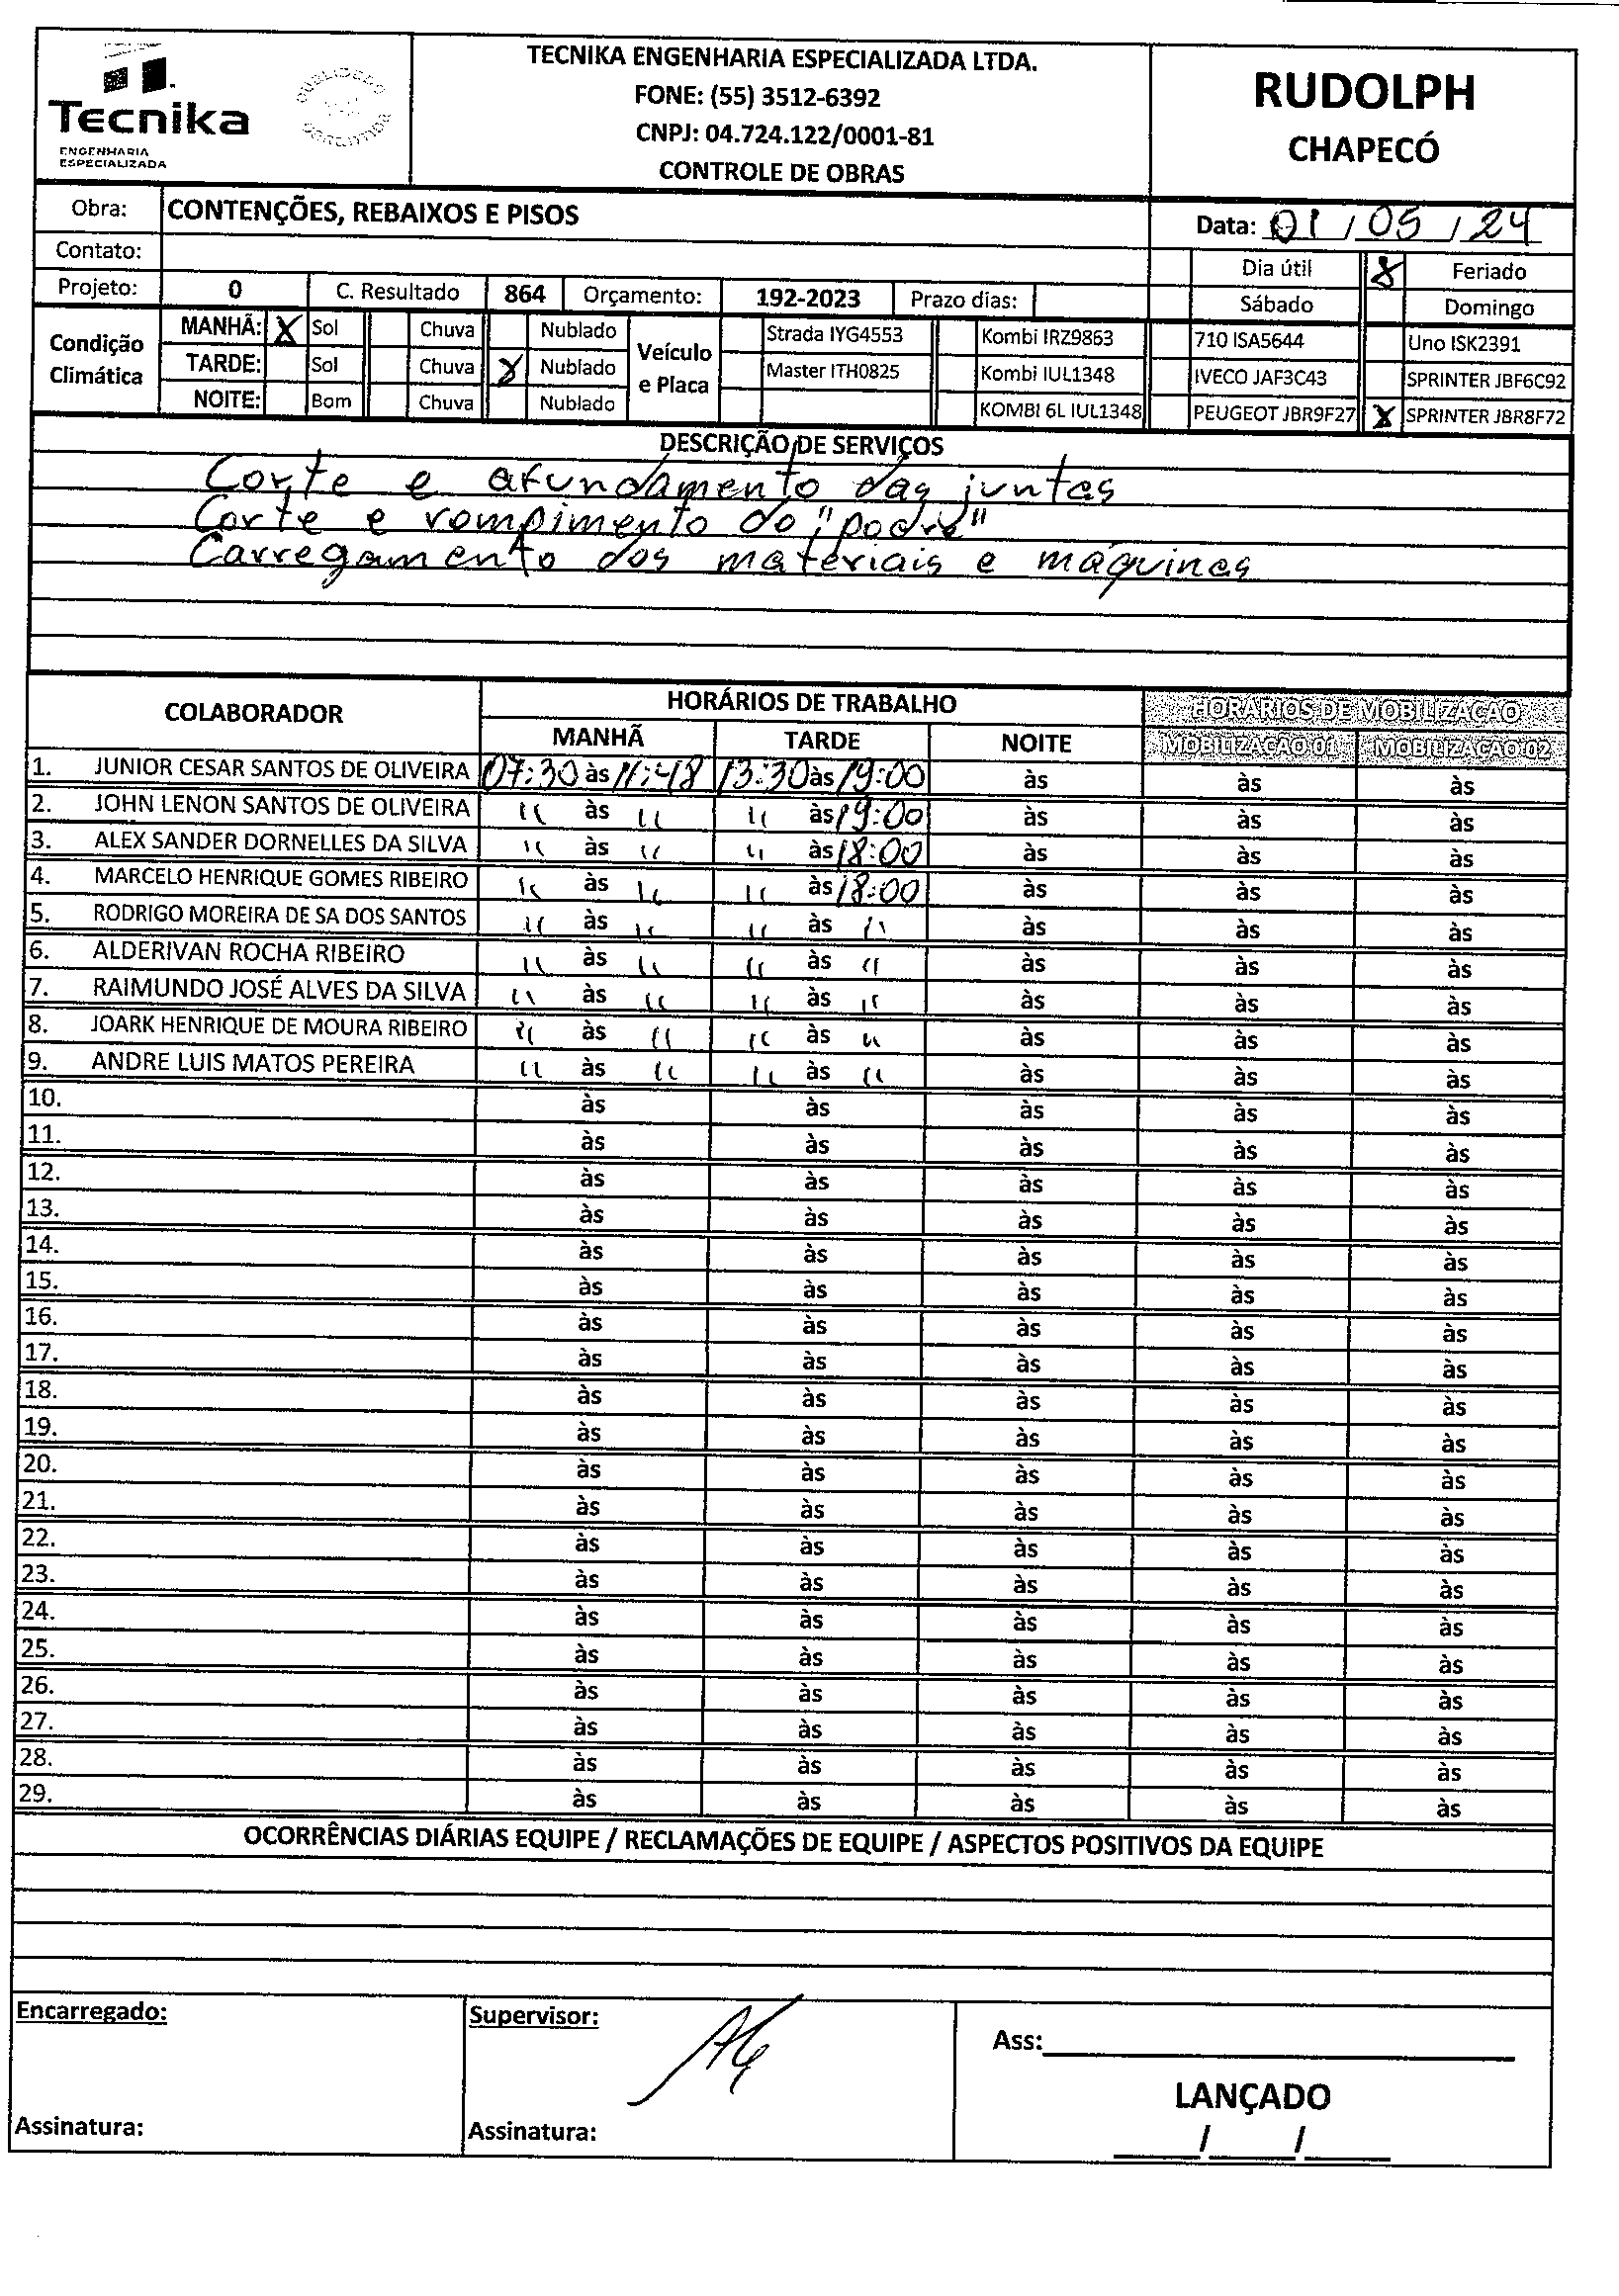 Tecnika
ENGENHARIA
ESPECIALIZADA
TECNIKA ENGENHARIA ESPECIALIZADA LTDA.
FONE: (55) 3512-6392
CNPJ: 04.724.122/0001-81
CONTROLE DE OBRAS
RUDOLPH
CHAPECÓ
Obra: CONTENÇÕES, REBAIXOS E PISOS
Data: 01 / 05 / 24
Contato:
Dia útil X Feriado
Projeto: 0 C. Resultado 864 Orçamento: 192-2023 Prazo dias:
Sábado Domingo
Condição Climática
MANHÃ: X Sol Chuva Nublado
TARDE: Sol Chuva X Nublado
NOITE: Bom Chuva Nublado
Veículo e Placa
Strada IYG4553 Kombi IRZ9863 710 ISA5644 Uno ISK2391
Master ITH0825 Kombi IUL1348 IVECO JAF3C43 SPRINTER JBF6C92
KOMBI 6L IUL1348 PEUGEOT JBR9F27 X SPRINTER JBR8F72
DESCRIÇÃO DE SERVIÇOS
Corte e afundamento das juntas
Corte e rompimento do "podre"
Carregamento dos materiais e máquinas
COLABORADOR HORÁRIOS DE TRABALHO HORÁRIOS DE MOBILIZAÇÃO
MANHÃ TARDE NOITE MOBILIZAÇÃO 01 MOBILIZAÇÃO 02
1. JUNIOR CESAR SANTOS DE OLIVEIRA 07:30 às 11:48 13:30 às 19:00 às às às
2. JOHN LENON SANTOS DE OLIVEIRA " às " " às 19:00 às às às
3. ALEX SANDER DORNELLES DA SILVA " às " " às 18:00 às às às
4. MARCELO HENRIQUE GOMES RIBEIRO " às " " às 18:00 às às às
5. RODRIGO MOREIRA DE SA DOS SANTOS " às " " às " às às às
6. ALDERIVAN ROCHA RIBEIRO " às " " às " às às às
7. RAIMUNDO JOSÉ ALVES DA SILVA " às " " às " às às às
8. JOARK HENRIQUE DE MOURA RIBEIRO " às " " às " às às às
9. ANDRE LUIS MATOS PEREIRA " às " " às " às às às
10. às às às às às
11. às às às às às
12. às às às às às
13. às às às às às
14. às às às às às
15. às às às às às
16. às às às às às
17. às às às às às
18. às às às às às
19. às às às às às
20. às às às às às
21. às às às às às
22. às às às às às
23. às às às às às
24. às às às às às
25. às às às às às
26. às às às às às
27. às às às às às
28. às às às às às
29. às às às às às
OCORRÊNCIAS DIÁRIAS EQUIPE / RECLAMAÇÕES DE EQUIPE / ASPECTOS POSITIVOS DA EQUIPE
Encarregado:
Supervisor:
Ass:
LANÇADO
Assinatura:
Assinatura:
/ /